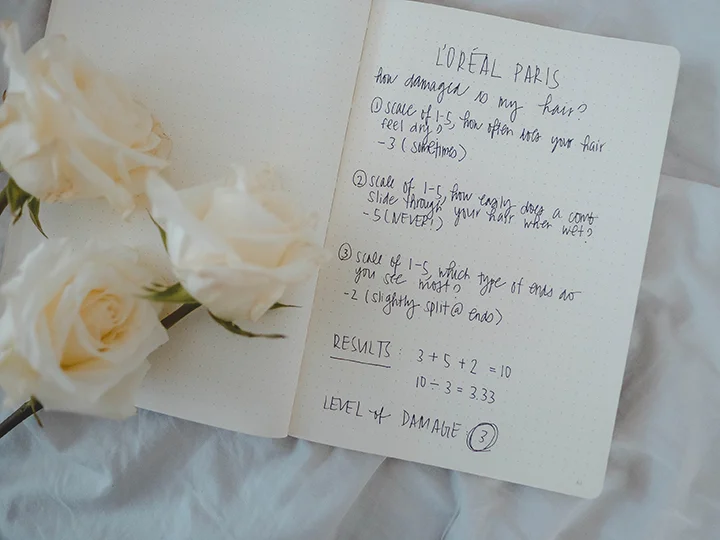 L'ORÉAL PARIS
how damaged is my hair?
① scale of 1-5, how often does your hair
feel dry?
-3 (sometimes)
② scale of 1-5, how easily does a comb
slide through your hair when wet?
-5 (NEVER!)
③ scale of 1-5, which type of ends do
you see most?
-2 (slightly split @ ends)
RESULTS: 3 + 5 + 2 = 10
10 ÷ 3 = 3.33
LEVEL of DAMAGE: ③